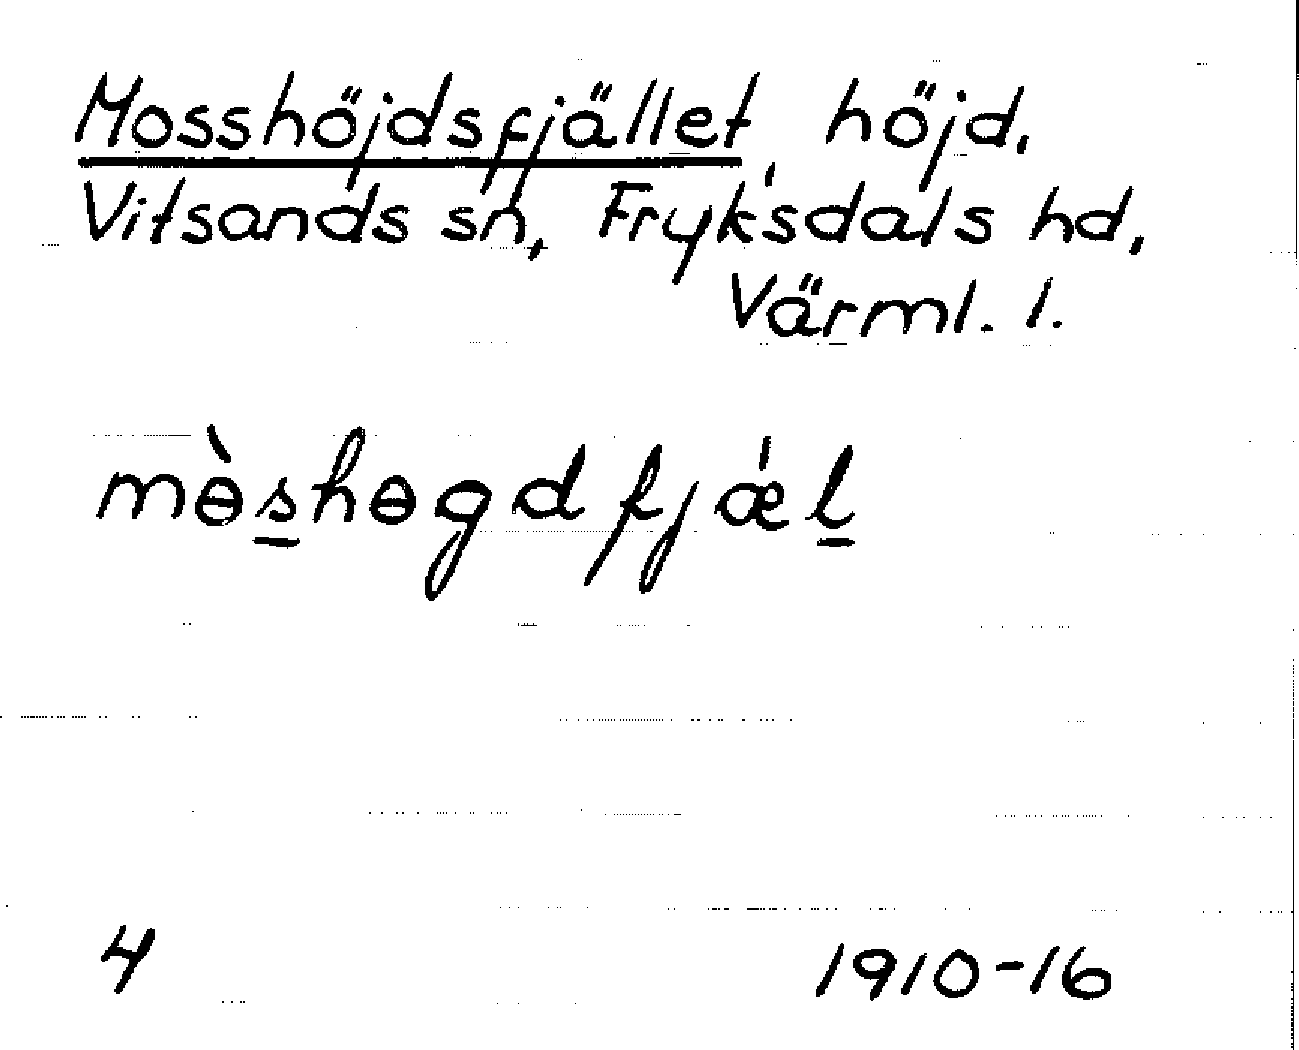 Mosshöjdsfjället, höjd,
Vitsands sn, Fryksdals hd,
Värml. l.
mɵ̀s̲hɵgdfjǽl̲
4 1910-16